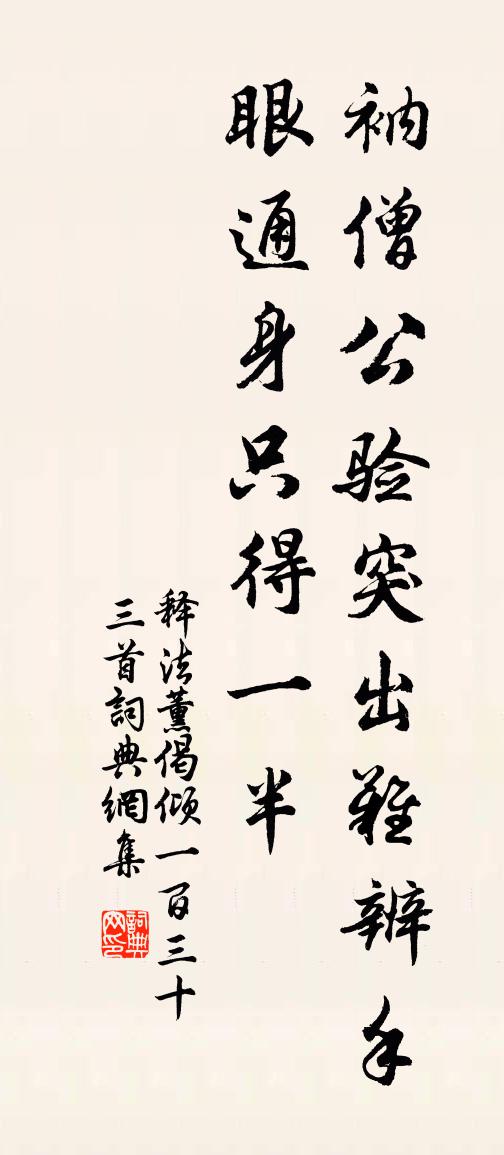 衲僧公验突出難辨手
眼通身只得一半
释法薰偈倾一百三十
三首詞典網集
詞典网印